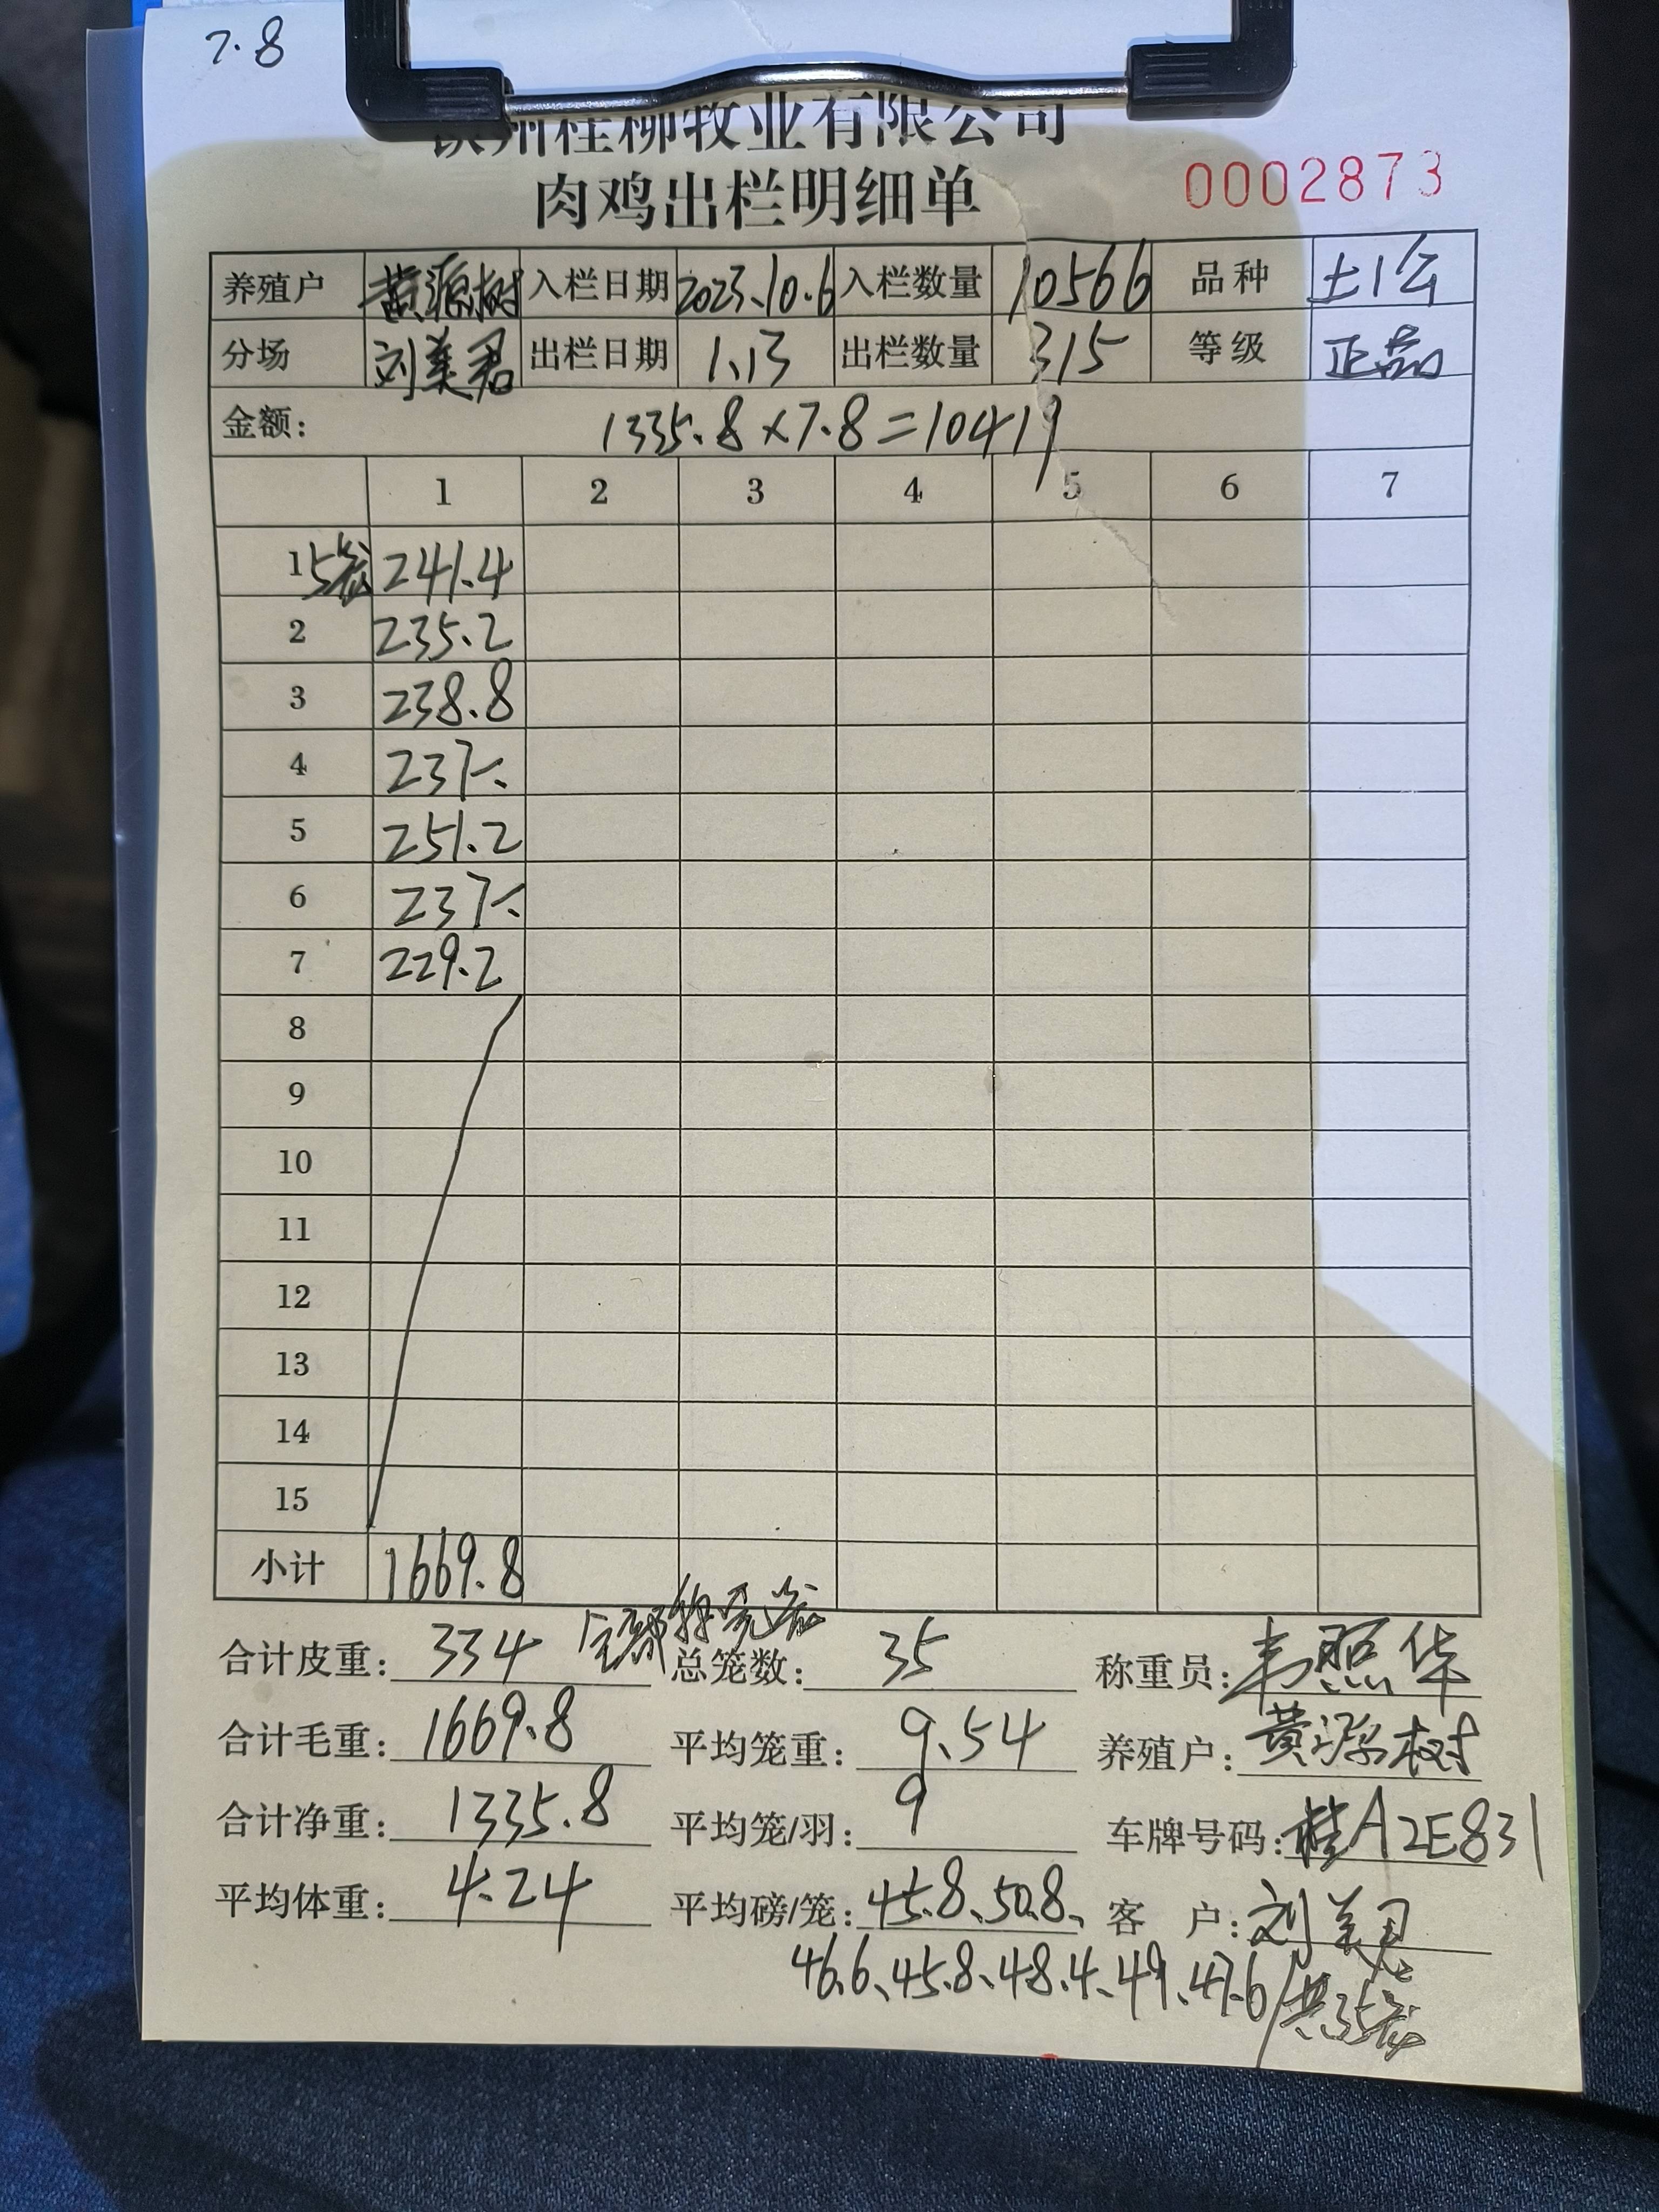 7.8
钦州桂柳牧业有限公司
肉鸡出栏明细单
0002873
养殖户 黄源树 入栏日期 2023.10.6 入栏数量 10566 品种 土1公
分场 刘美君 出栏日期 1.13 出栏数量 315 等级 正品
金额: 1335.8×7.8=10419
1 2 3 4 5 6 7
1 5笼 241.4
2 235.2
3 238.8
4 237
5 251.2
6 237
7 229.2
8
9
10
11
12
13
14
15
小计 1669.8
合计皮重: 334 全部 总笼数: 35 称重员: 韦照华
合计毛重: 1669.8 平均笼重: 9.54 养殖户: 黄源树
合计净重: 1335.8 平均笼/羽: 9 车牌号码: 桂A2E831
平均体重: 4.24 平均磅/笼: 45.8、50.8、 客 户: 刘美君
46.6、45.8、48.4、49、47.6/共35笼